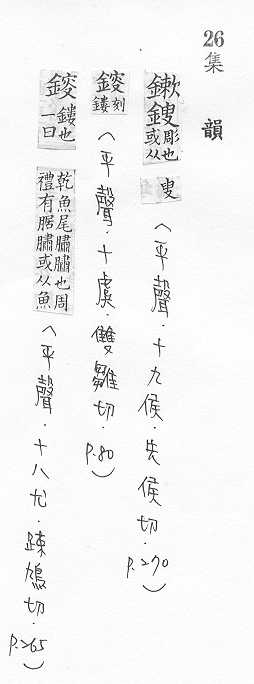 26 集韻
鏉鎪彫也或从叟（平聲．十九侯．先侯切．P.270）
鎫鏤刻（平聲．十虞．雙雛切．P.80）
鎫鏤也一曰乾魚尾䐹䐹也周禮有腒䐹或从魚（平聲．十八尤．疎鳩切．P.265）